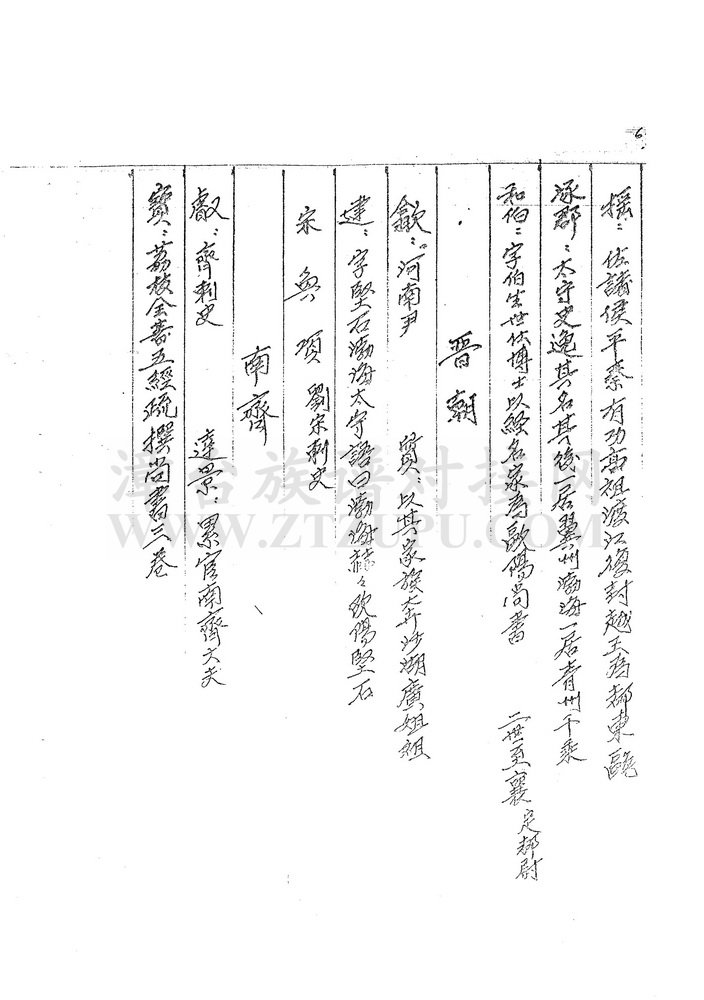 6
搖：佐諸侯平秦有功高祖渡江後封越王為都東甌
涿郡：太守史逸其名其後一居冀州渤海一居青州千乘
和伯：字伯生世仕博士以經名家為歐陽尚書 二世至襄 定都尉
晉朝
歙：河南尹 質：以其家族大奔沙湖廣
建：字堅石渤海太守語曰渤海赫々歐陽堅石
宋 項 劉宋刺史
南齊
叡：齊刺史 達景：累官南齊大夫
寶：荔枝全著五經疏撰尚書三卷
漳台族谱对接网
WWW.ZTZUPU.COM